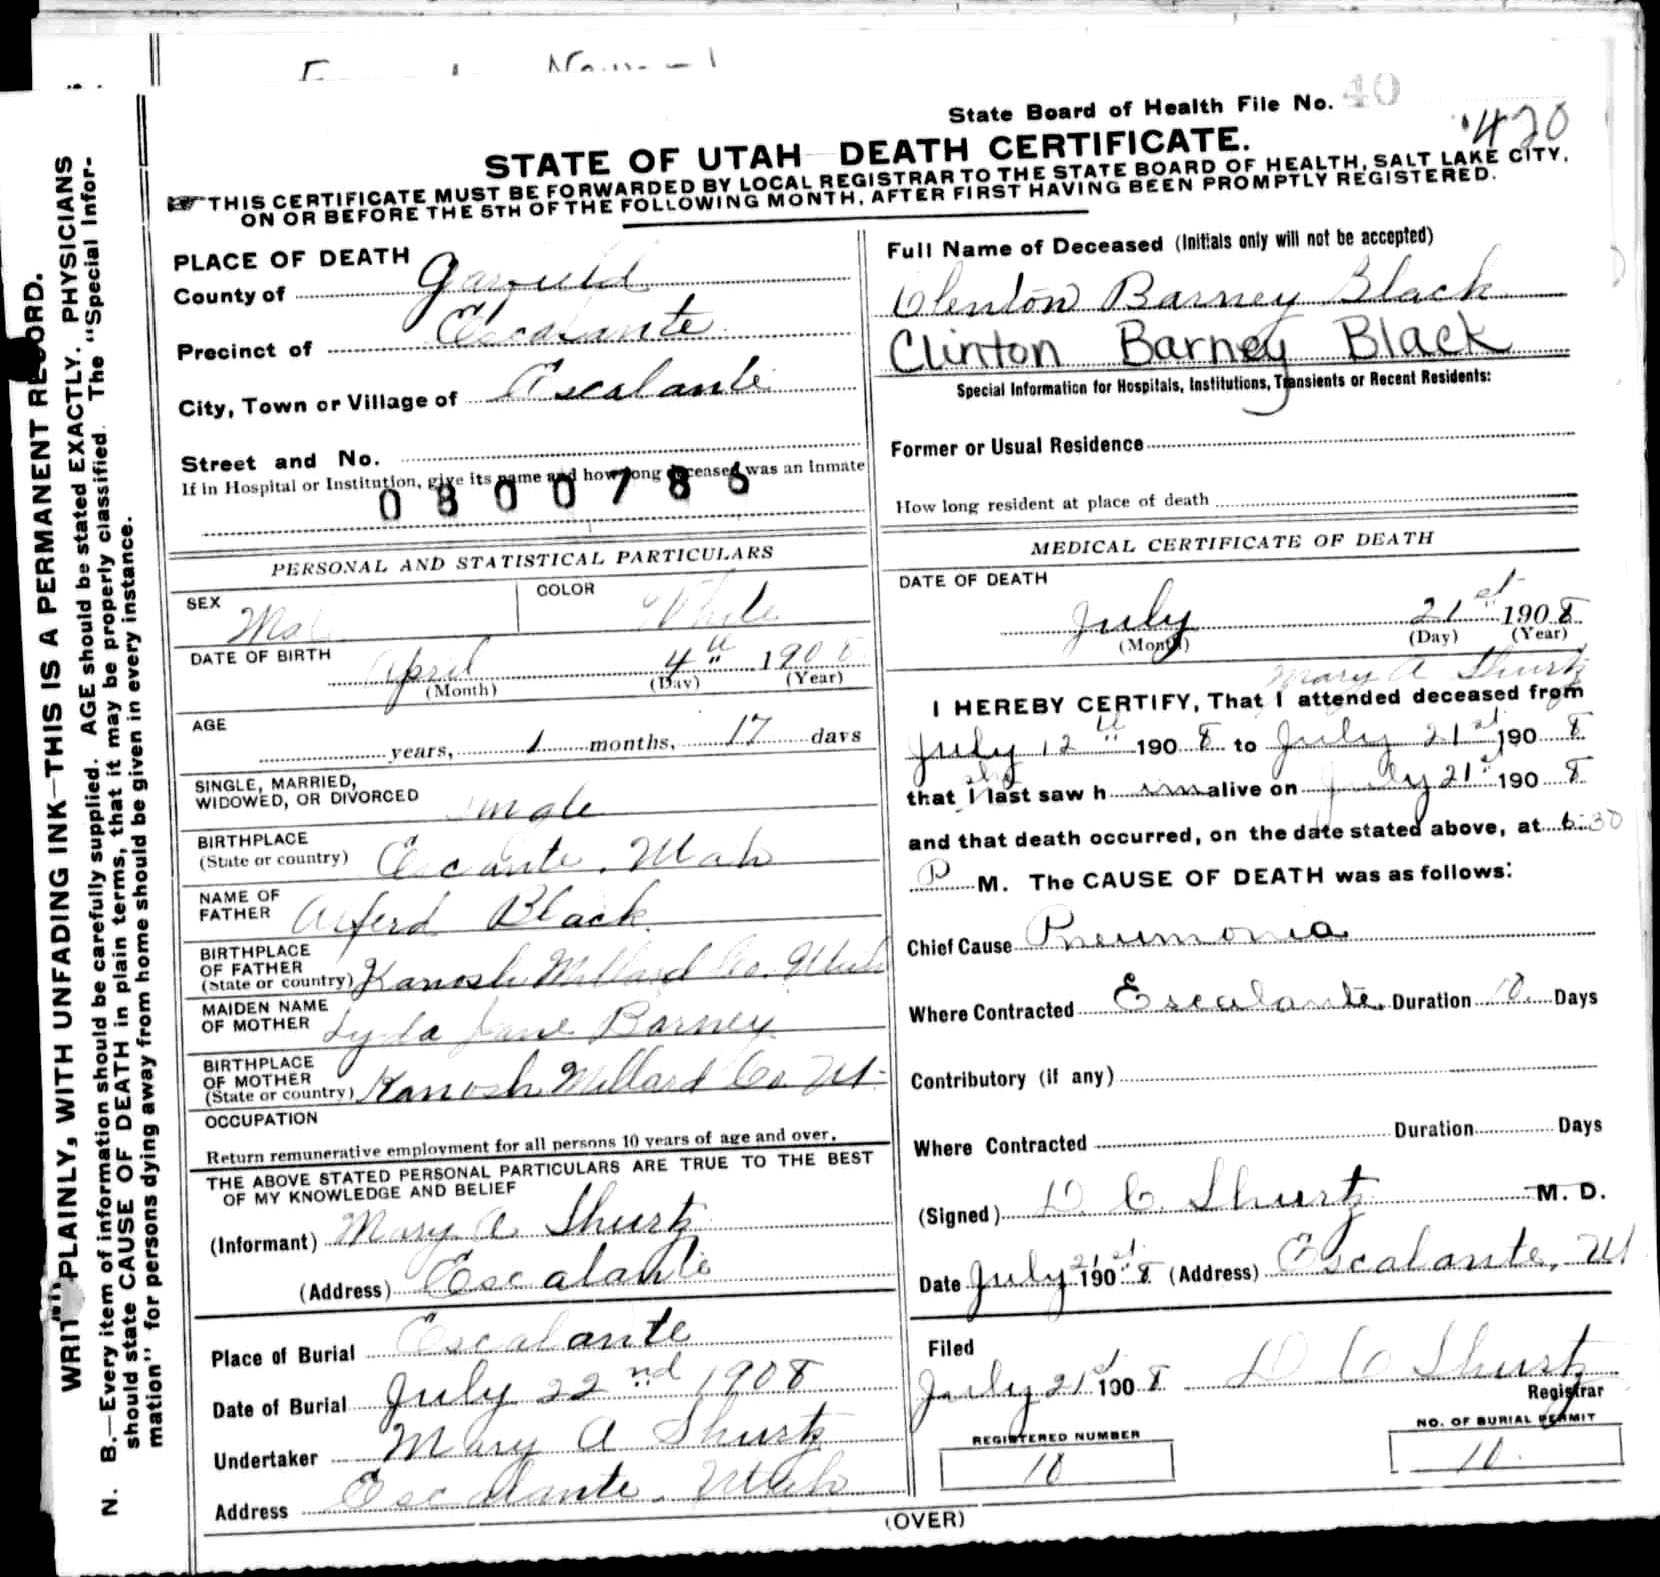 State Board of Health File No. 40
420
STATE OF UTAH DEATH CERTIFICATE.
THIS CERTIFICATE MUST BE FORWARDED BY LOCAL REGISTRAR TO THE STATE BOARD OF HEALTH, SALT LAKE CITY,
ON OR BEFORE THE 5TH OF THE FOLLOWING MONTH, AFTER FIRST HAVING BEEN PROMPTLY REGISTERED.
PLACE OF DEATH
County of Garfield
Precinct of Escalante
City, Town or Village of Escalante
Street and No.
If in Hospital or Institution, give its name and how long deceased was an Inmate
0300786
PERSONAL AND STATISTICAL PARTICULARS
SEX Male COLOR White
DATE OF BIRTH
April 4th 1908
(Month) (Day) (Year)
AGE
years, 1 months, 17 days
SINGLE, MARRIED,
WIDOWED, OR DIVORCED single
BIRTHPLACE
(State or country) Escalante, Utah
NAME OF
FATHER Alferd Black
BIRTHPLACE
OF FATHER
(State or country) Kanosh Millard Co. Utah
MAIDEN NAME
OF MOTHER Lyda Jane Barney
BIRTHPLACE
OF MOTHER
(State or country) Kanosh Millard Co. Ut
OCCUPATION
Return remunerative employment for all persons 10 years of age and over.
THE ABOVE STATED PERSONAL PARTICULARS ARE TRUE TO THE BEST
OF MY KNOWLEDGE AND BELIEF
(Informant) Mary A Shurtz
(Address) Escalante
Place of Burial Escalante
Date of Burial July 22nd 1908
Undertaker Mary A Shurtz
Address Escalante, Utah
Full Name of Deceased (Initials only will not be accepted)
Clenton Barney Black
Clinton Barney Black
Special Information for Hospitals, Institutions, Transients or Recent Residents:
Former or Usual Residence
How long resident at place of death
MEDICAL CERTIFICATE OF DEATH
DATE OF DEATH
July 21st 1908
(Month) (Day) (Year)
Mary A Shurtz
I HEREBY CERTIFY, That I attended deceased from
July 12th 1908 to July 21st 1908
she
that I last saw him alive on July 21st 1908
and that death occurred, on the date stated above, at 6:30
P M. The CAUSE OF DEATH was as follows:
Chief Cause Pneumonia
Where Contracted Escalante Duration 10 Days
Contributory (if any)
Where Contracted Duration Days
(Signed) D C Shurtz M. D.
Date July 21st 1908 (Address) Escalante, Ut
Filed
July 21st 1908 D C Shurtz
Registrar
REGISTERED NUMBER
10
NO. OF BURIAL PERMIT
10
(OVER)
WRITE PLAINLY, WITH UNFADING INK—THIS IS A PERMANENT RECORD.
N. B.—Every item of information should be carefully supplied. AGE should be stated EXACTLY. PHYSICIANS
should state CAUSE OF DEATH in plain terms, that it may be properly classified. The "Special Infor-
mation" for persons dying away from home should be given in every instance.